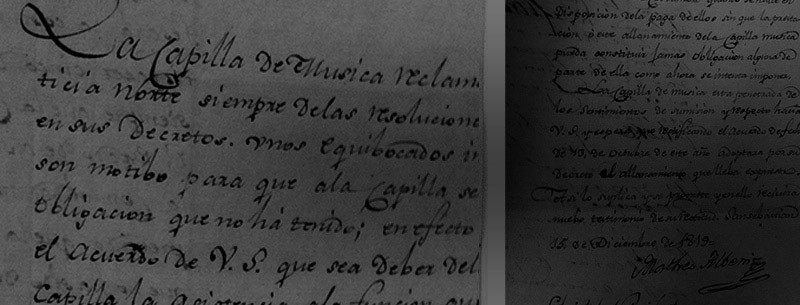 La Capilla de Musica reclam
ticia norte siempre delas resolucione
en sus Decretos. Unos equibocados in
son motibo para que ala Capilla se
obligacion que no há tenido; en efecto
el Acuerdo de V. S. que sea deber del
Capilla la asistencia ala funcion que
Disposicion dela paga de ellos sin que la presta
cion ó este allanamiento dela Capilla musica
pueda constituir jamás obligacion alguna de
parte de ella como ahora se intenta imponer.
La Capilla de musica esta penetrada de
los Sentimientos de sumision y respeto hacia
V. S. y espera que rectificando el Acuerdo de fecha
de de Octubre de este año adoptara por su
Decreto el allanamiento que lleba expuesto.
Asi lo suplica y se promete y en ello recivirá
nuebo testimonio de su Sansebastian
15 de Diciembre de 1819.
Matheo Albeniz